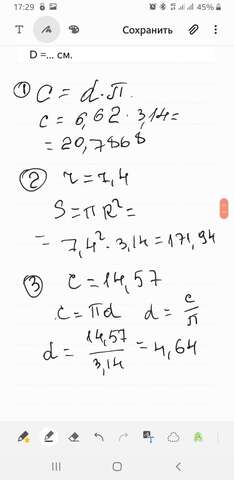 17:29
45%
T
Сохранить
D =... см.
① C = d·π.
c = 6,62 · 3,14 =
= 20,7868
② r = 7,4
S = πR² =
= 7,4² · 3,14 = 171,94
③ c = 14,57
c = πd d = c/π
d = 14,57/3,14 = 4,64